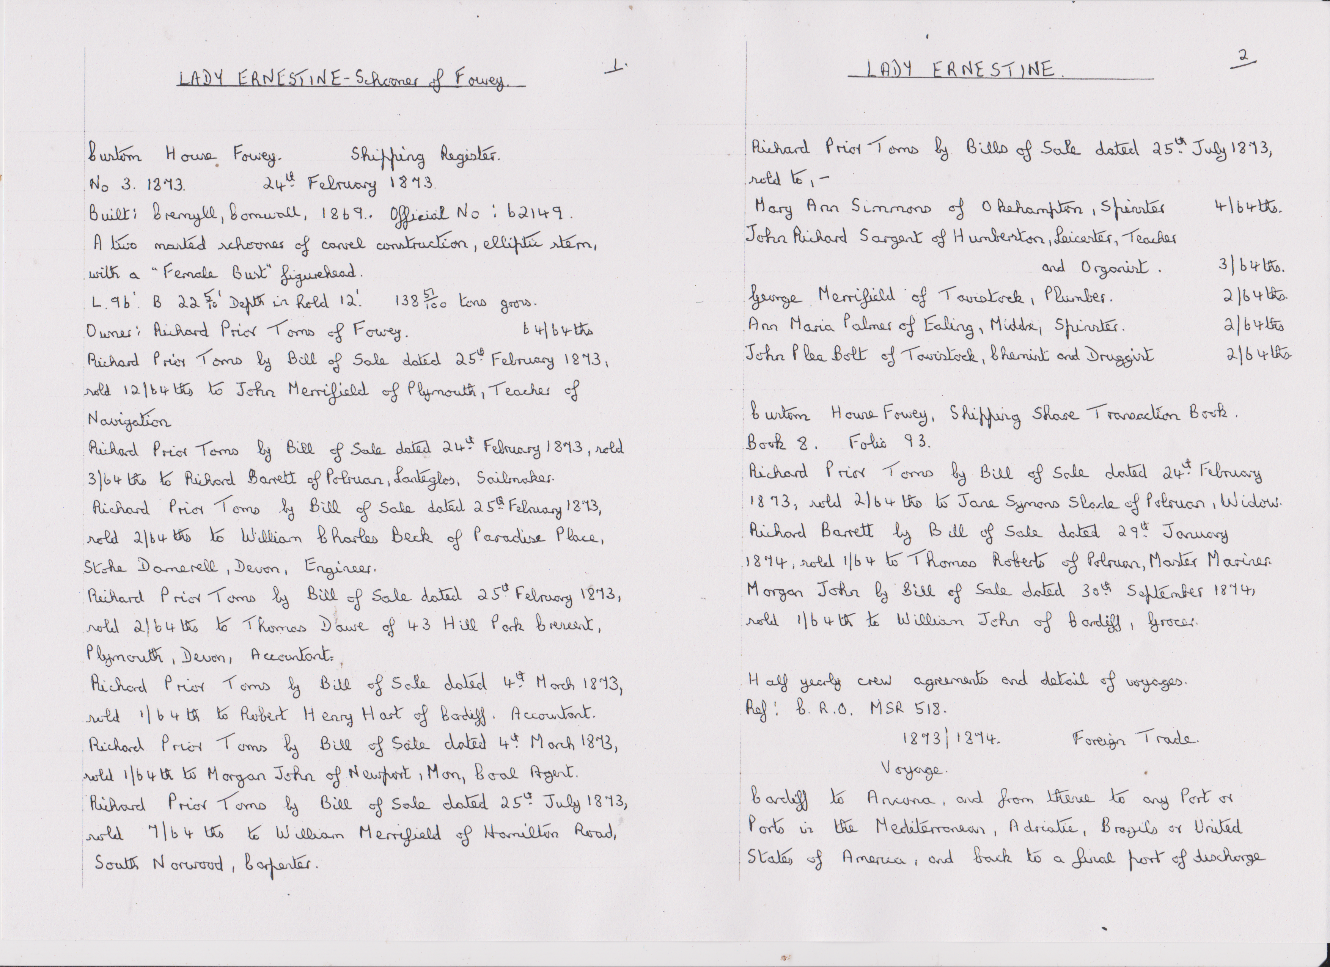 1.
LADY ERNESTINE - Schooner of Fowey.
Custom House Fowey. Shipping Register.
No 3. 1873. 24th February 1873
Built: Cremyll, Cornwall, 1869. Official No: 62149.
A two masted schooner of carvel construction, elliptic stern,
with a "Female Bust" figurehead.
L. 96'. B 22 5/10' Depth in Hold 12'. 138 51/100 tons gross.
Owner: Richard Prior Toms of Fowey. 64/64ths
Richard Prior Toms by Bill of Sale dated 25th February 1873,
sold 12/64ths to John Merrifield of Plymouth, Teacher of
Navigation
Richard Prior Toms by Bill of Sale dated 24th February 1873, sold
3/64ths to Richard Barrett of Polruan, Lanteglos, Sailmaker.
Richard Prior Toms by Bill of Sale dated 25th February 1873,
sold 2/64ths to William Charles Beck of Paradise Place,
Stoke Damerell, Devon, Engineer.
Richard Prior Toms by Bill of Sale dated 25th February 1873,
sold 2/64ths to Thomas Dawe of 43 Hill Park Crescent,
Plymouth, Devon, Accountant.
Richard Prior Toms by Bill of Sale dated 4th March 1873,
sold 1/64th to Robert Henry Hart of Cardiff. Accountant.
Richard Prior Toms by Bill of Sale dated 4th March 1873,
sold 1/64th to Morgan John of Newport, Mon, Coal Agent.
Richard Prior Toms by Bill of Sale dated 25th July 1873,
sold 7/64ths to William Merrifield of Hamilton Road,
South Norwood, Carpenter.
2
LADY ERNESTINE.
Richard Prior Toms by Bills of Sale dated 25th July 1873,
sold to, -
Mary Ann Simmons of Okehampton, Spinster 4/64ths.
John Richard Sargent of Humberton, Leicester, Teacher
and Organist. 3/64ths.
George Merrifield of Tavistock, Plumber. 2/64ths.
Ann Maria Palmer of Ealing, Middx, Spinster. 2/64ths
John Plea Bolt of Tavistock, Chemist and Druggist 2/64ths
Custom House Fowey, Shipping Share Transaction Book.
Book 8. Folio 93.
Richard Prior Toms by Bill of Sale dated 24th February
1873, sold 2/64ths to Jane Symons Slade of Polruan, Widow.
Richard Barrett by Bill of Sale dated 29th January
1874, sold 1/64 to Thomas Roberts of Polruan, Master Mariner.
Morgan John by Bill of Sale dated 30th September 1874,
sold 1/64th to William John of Cardiff, Grocer.
Half yearly crew agreements and detail of voyages.
Ref: C.R.O. MSR 518.
1873/1874. Foreign Trade.
Voyage.
Cardiff to Ancona, and from thence to any Port or
Ports in the Mediterranean, Adriatic, Brazils or United
States of America, and back to a final port of discharge